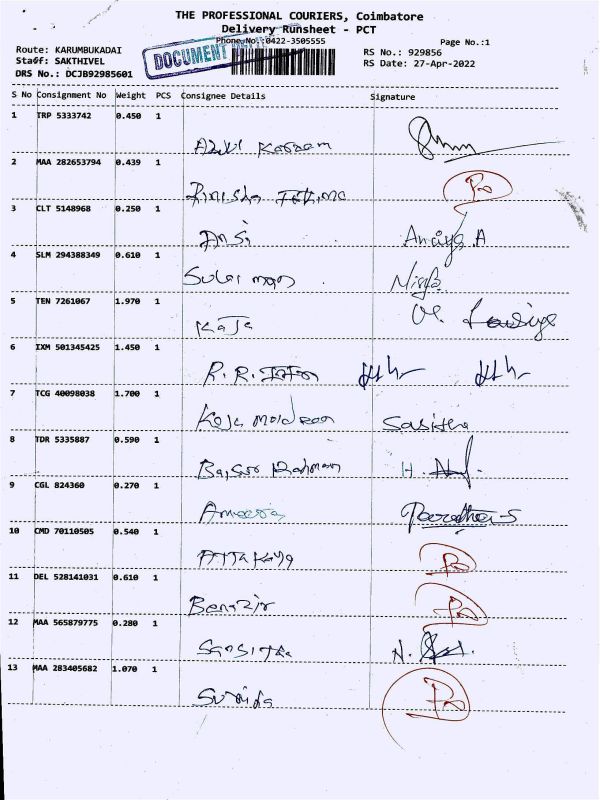 THE PROFESSIONAL COURIERS, Coimbatore
Delivery Runsheet - PCT
Phone No.:0422-3505555
Page No.:1
Route: KARUMBUKADAI
RS No.: 929856
Staff: SAKTHIVEL
RS Date: 27-Apr-2022
DRS No.: DCJB92985601
DOCUMENT
S No Consignment No Weight PCS Consignee Details Signature
1 TRP 5333742 0.450 1
Abdul Kareem
2 MAA 282653794 0.439 1
Rinisha Fathima
3 CLT 5148968 0.250 1
Ansi
4 SLM 294388349 0.610 1
Sulaiman
5 TEN 7261067 1.970 1
Kaja
6 IXM 501345425 1.450 1
R.R. Irfan
7 TCG 40098038 1.700 1
Kaja moideen Sasitha
8 TDR 5335887 0.590 1
Rahman
9 CGL 824360 0.270 1
Ameera
10 CMD 70110505 0.540 1
11 DEL 528141031 0.610 1
Benazir
12 MAA 565879775 0.280 1
13 MAA 283405682 1.070 1